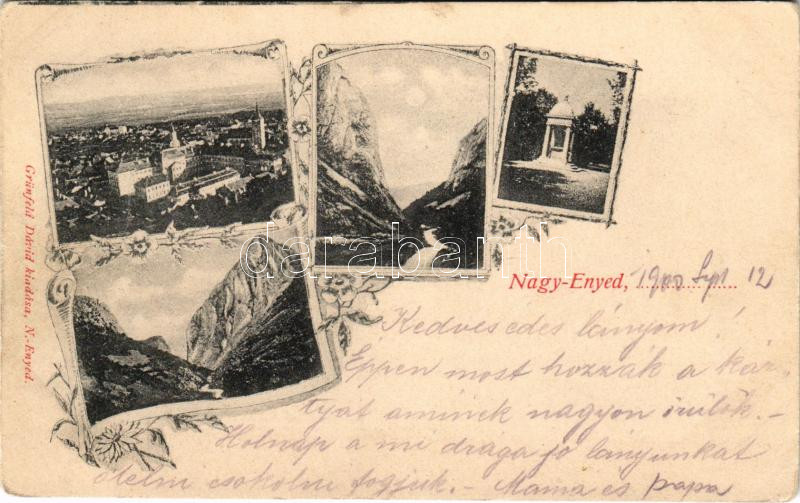 Grünfeld Dávid kiadása, N.-Enyed.
darabanth
Nagy-Enyed, 1900 Sept 12
Kedves edes lányom!
Éppen most hozzák a kár-
tyát aminek nagyon örülök.-
Holnap a mi draga jó lányunkat
ölelni csokolni fogjuk.- Mama es papa